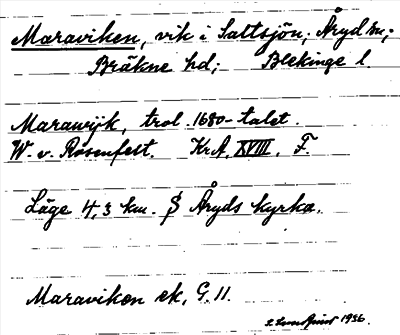 Maraviken, vik i Saltsjön; Åryd sn;
Bräkne hd; Blekinge l.
Marawijk, trol. 1680-talet.
W. v. Rosenfelt. KrA, XVIII, F.
Läge 4,3 km. S Åryds kyrka.
Maraviken ek, G. 11.
1936.